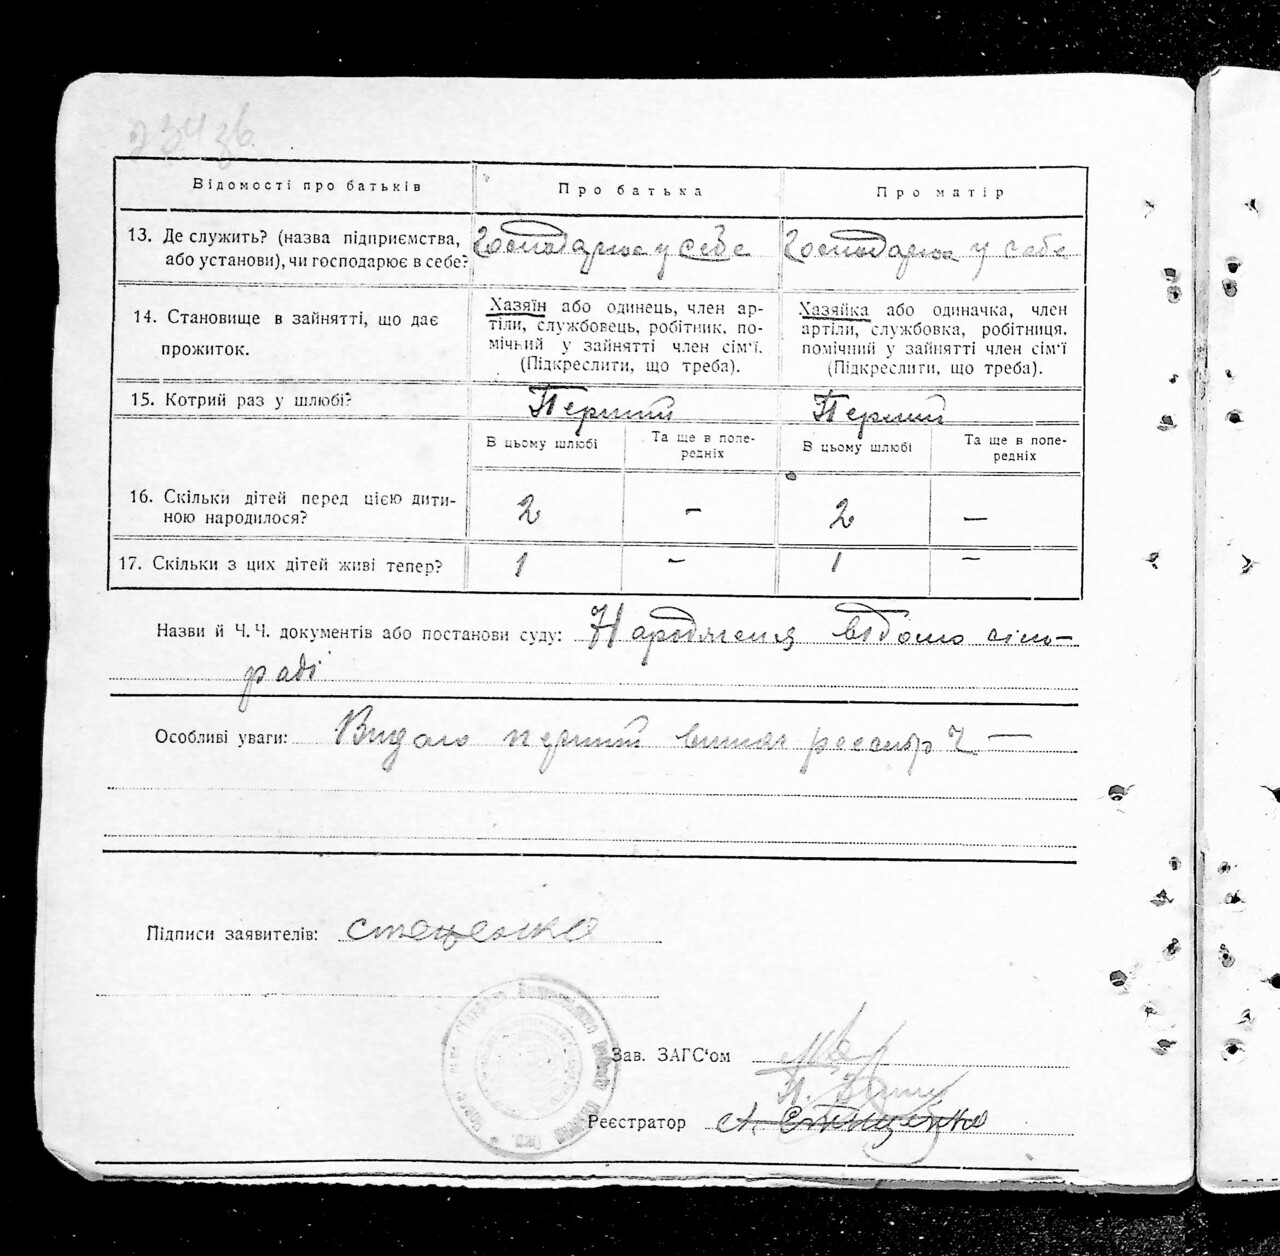 234 зв.
Відомості про батьків
Про батька
Про матір
13. Де служить? (назва підприємства,
або установи), чи господарює в себе?
Господарює у себе
Господарює у себе
14. Становище в зайнятті, що дає
прожиток.
Хазяїн або одинець, член ар-
тіли, службовець, робітник, по-
мічний у зайнятті член сім'ї.
(Підкреслити, що треба).
Хазяйка або одиначка, член
артіли, службовка, робітниця,
помічний у зайнятті член сім'ї
(Підкреслити, що треба).
15. Котрий раз у шлюбі?
Перший
Перший
В цьому шлюбі
Та ще в попе-
редніх
В цьому шлюбі
Та ще в попе-
редніх
16. Скільки дітей перед цією дити-
ною народилося?
2 – 2 –
17. Скільки з цих дітей живі тепер?
1 – 1 –
Назви й Ч.Ч. документів або постанови суду: Народження відомо сіль-
раді
Особливі уваги: Видано перший реєстр Ч —
Підписи заявителів: Стеценко
Зав. ЗАГС'ом
Реєстратор А. Стеценко